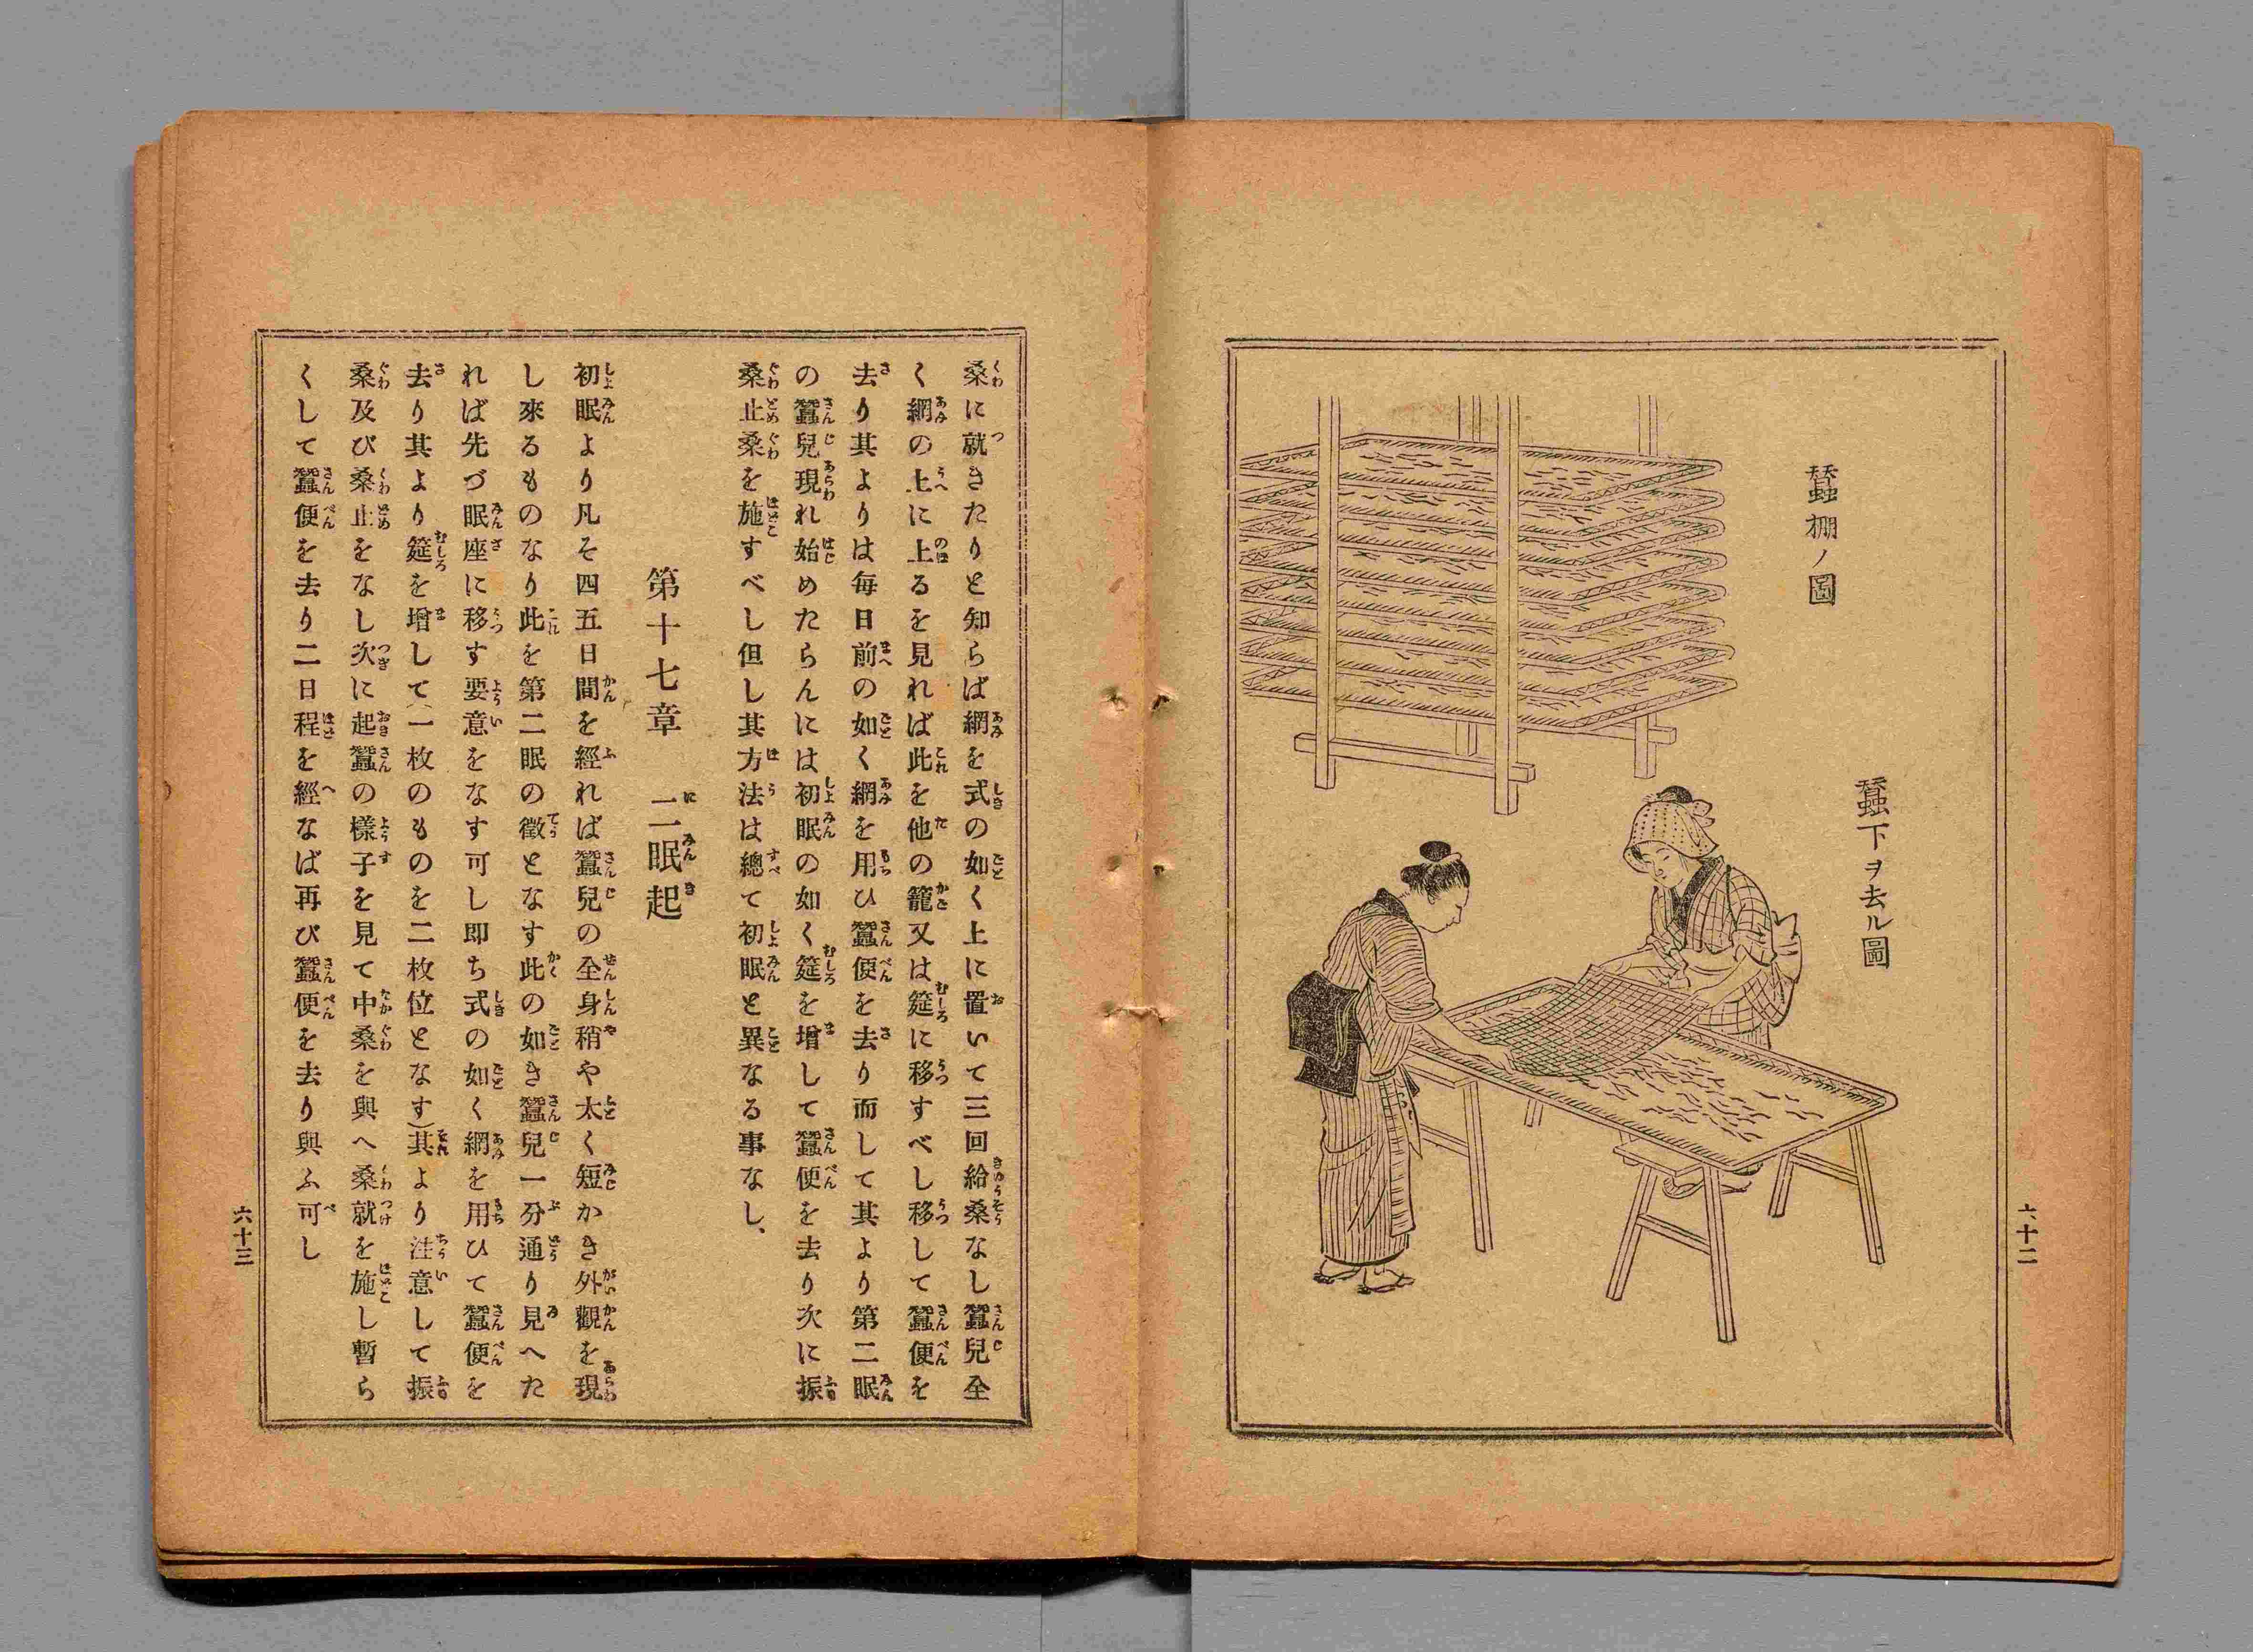 蠶棚ノ圖
蠶下ヲ去ル圖
六十二
桑に就きたりと知らば網を式の如く上に置いて三回給桑なし蠶兒全
く網の上に上るを見れば此を他の籠又は筵に移すべし移して蠶便を
去り其よりは毎日前の如く網を用ひ蠶便を去り而して其より第二眠
の蠶兒現れ始めたらんには初眠の如く筵を増して蠶便を去り次に振
桑止桑を施すべし但し其方法は總て初眠と異なる事なし、
第十七章 二眠起
初眠より凡そ四五日間を經れば蠶兒の全身稍や太く短かき外觀を現
し來るものなり此を第二眠の徴となす此の如き蠶兒一分通り見へた
れば先づ眠座に移す要意をなす可し即ち式の如く網を用ひて蠶便を
去り其より筵を増して(一枚のものを二枚位となす)其より注意して振
桑及び桑止をなし次に起蠶の樣子を見て中桑を與へ桑就を施し暫ら
くして蠶便を去り二日程を經なば再び蠶便を去り與ふ可し
六十三